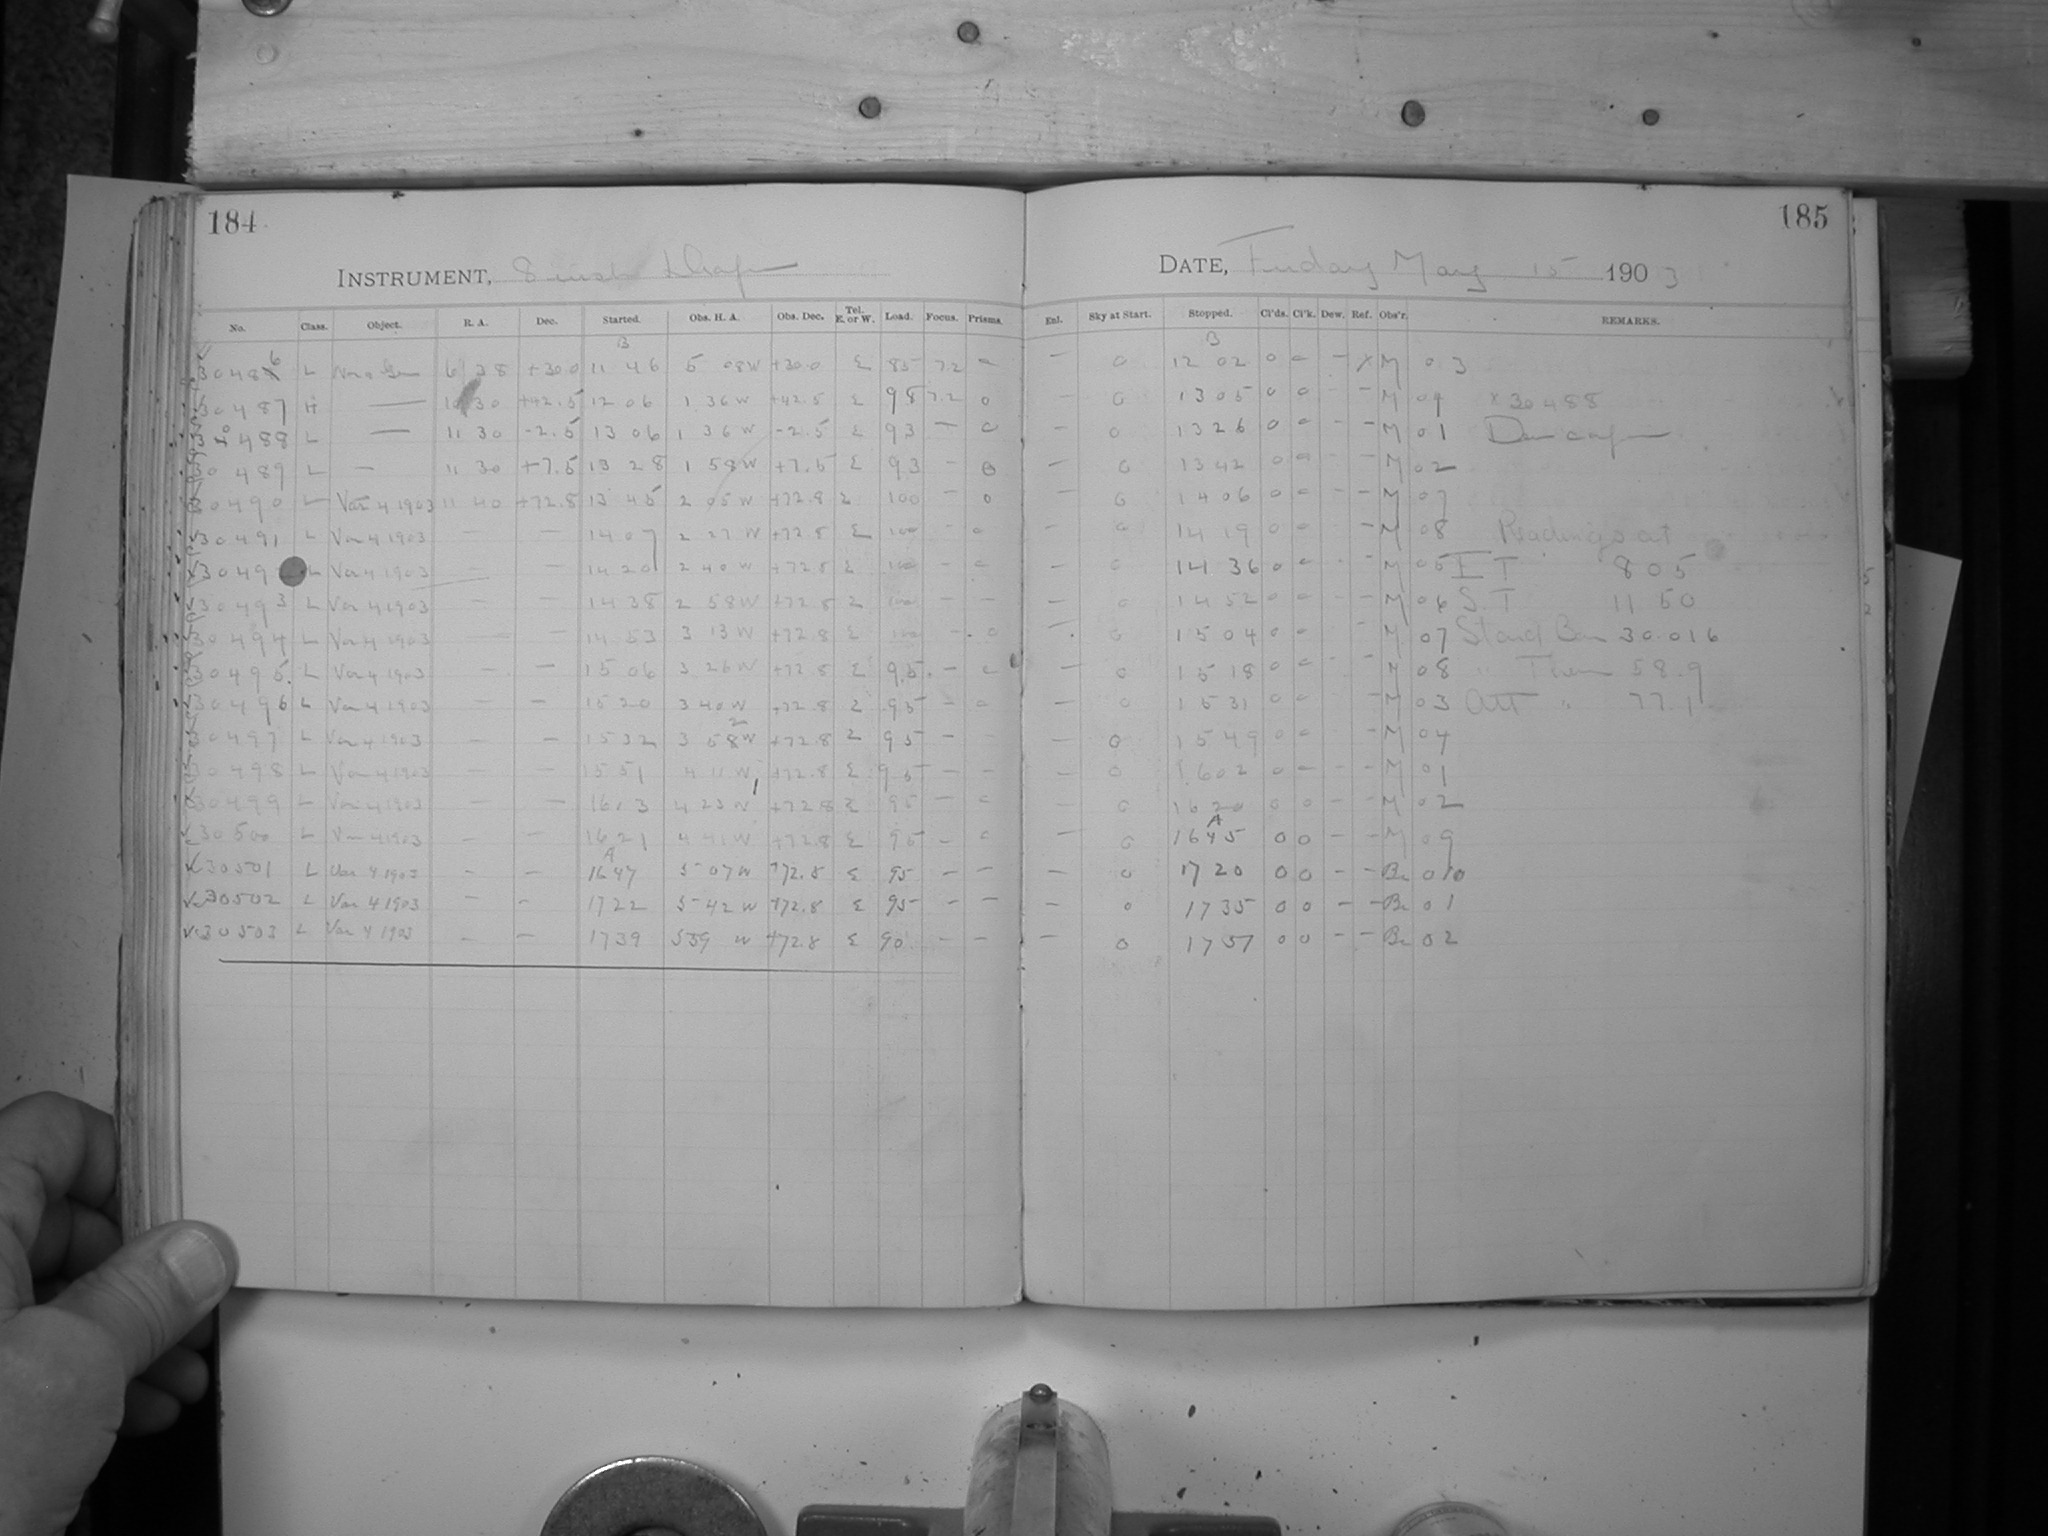 184
185
INSTRUMENT, 8 inch Draper
DATE, Friday May 15 1903
No. Class. Object. R. A. Dec. Started. Obs. H. A. Obs. Dec. Tel. E. or W. Load. Focus. Prisms. Enl. Sky at Start. Stopped. Cl'ds. Cl'k. Dew. Ref. Obs'r. REMARKS.
B B
30486 L Nova Gem 6 38 +30.0 11 46 5 08W +30.0 E 85 7.2 0 – 0 12 02 0 0 – X M 03
30487 H — 11 30 +42.5 12 06 1 36W +42.5 E 98 7.2 0 – 0 13 05 0 0 – – M 04 x 30488
30488 L — 11 30 -2.5 13 06 1 36W -2.5 E 93 – 0 0 13 26 0 0 – – M 01
30489 L – 11 30 +7.5 13 28 1 58W +7.5 E 93 – 0 – 0 13 42 0 0 – – M 02
30490 L Var 4 1903 11 40 +72.8 13 45 2 05W +72.8 E 100 – 0 – 0 14 06 0 0 – – M 07
30491 L Var 4 1903 – – 14 07 2 27W +72.8 E 100 – 0 – 0 14 19 0 0 – M 08 Readings at
3049 L Var 4 1903 – – 14 20 2 40W +72.8 E 100 – 0 – 0 14 36 0 0 – – M 05 E T 8 05
30493 L Var 4 1903 – – 14 38 2 58W +72.8 E 100 – – – 0 14 52 0 0 – – M 06 S T 11 50
30494 L Var 4 1903 – – 14 53 3 13W +72.8 E 100 – 0 – 0 15 04 0 0 – M 07 Stand Bar 30.016
30495 L Var 4 1903 – – 15 06 3 26W +72.8 E 95 – 0 – 0 15 18 0 0 – – M 08 " Ther 58.9
30496 L Var 4 1903 – – 15 20 3 40W +72.8 E 95 – 0 – 0 15 31 0 0 – M 03 Att " 77.1
30497 L Var 4 1903 – – 15 32 3 58W +72.8 E 95 – – – 0 15 49 0 0 – – M 04
30498 L Var 4 1903 – – 15 51 4 11W +72.8 E 95 – – – 0 16 02 0 0 – – M 01
30499 L Var 4 1903 – – 16 03 4 23W +72.8 E 95 – 0 – 0 16 20 0 0 – – M 02
A
30500 L Var 4 1903 – – 16 21 4 41W +72.8 E 95 – 0 – 0 16 45 0 0 – – M 09
A
30501 L Var 4 1903 – – 16 47 5 07W +72.8 E 95 – – – 0 17 20 0 0 – – Bu 010
30502 L Var 4 1903 – – 17 22 5 42W +72.8 E 95 – – – 0 17 35 0 0 – – Bu 01
30503 L Var 4 1903 – – 17 39 5 59 W +72.8 E 90 – – – 0 17 57 0 0 – – Bu 02